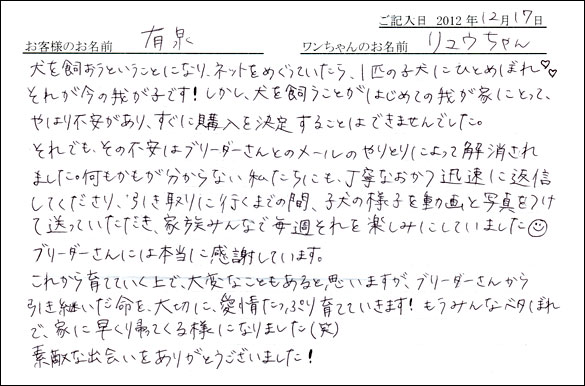 ご記入日 2012年12月17日
お客様のお名前 有泉 ワンちゃんのお名前 リュウちゃん
犬を飼おうということになり、ネットをめぐっていたら、1匹の子犬にひとめぼれ♡♡
それが今の我が子です!しかし、犬を飼うことがはじめての我が家にとって、
やはり不安があり、すぐに購入を決定することはできませんでした。
それでも、その不安はブリーダーさんとのメールのやりとりによって解消され
ました。何もかもが分からない私たちにも、丁寧なおかつ迅速に返信
してくださり、引き取りに行くまでの間、子犬の様子を動画と写真をつけ
て送っていただき、家族みんなで毎週それを楽しみにしていました☺
ブリーダーさんには本当に感謝しています。
これから育てていく上で、大変なこともあると思いますが、ブリーダーさんから
引き継いだ命を、大切に、愛情たっぷり育てていきます!もうみんなベタぼれ
で、家に早くり帰ってくる様になりました(笑)
素敵な出会いをありがとうございました!